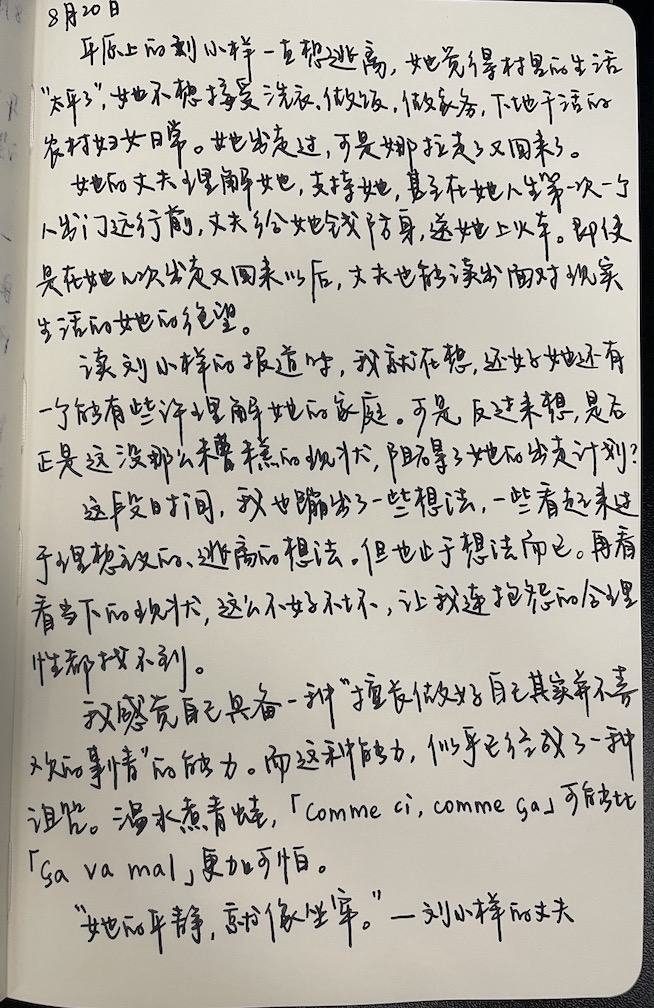 8月20日
平原上的刘小样一直想逃离，她觉得村里的生活
“太平了”，她不想接受洗衣、做饭、做家务、下地干活的
农村妇女日常。她出走过，可是娜拉走了又回来了。
她的丈夫理解她，支持她，甚至在她人生第一次一个
人出门远行前，丈夫给她钱防身，送她上火车。即使
是在她N次出走又回来以后，丈夫也能读出面对现实
生活的她的绝望。
读刘小样的报道时，我就在想，还好她还有
一个能有些许理解她的家庭。可是反过来想，是否
正是这没那么糟糕的现状，阻碍了她的出走计划？
这段时间，我也蹦出了一些想法，一些看起来过
于理想主义的、逃离的想法。但也止于想法而已。再看
看当下的现状，这么不好不坏，让我连抱怨的合理
性都找不到。
我感觉自己具备一种“擅长做好自己其实并不喜
欢的事情”的能力。而这种能力，似乎已经成了一种
诅咒。温水煮青蛙，「comme ci, comme ça」可能比
「ça va mal」更加可怕。
“她的平静，就像坐牢。”—刘小样的丈夫